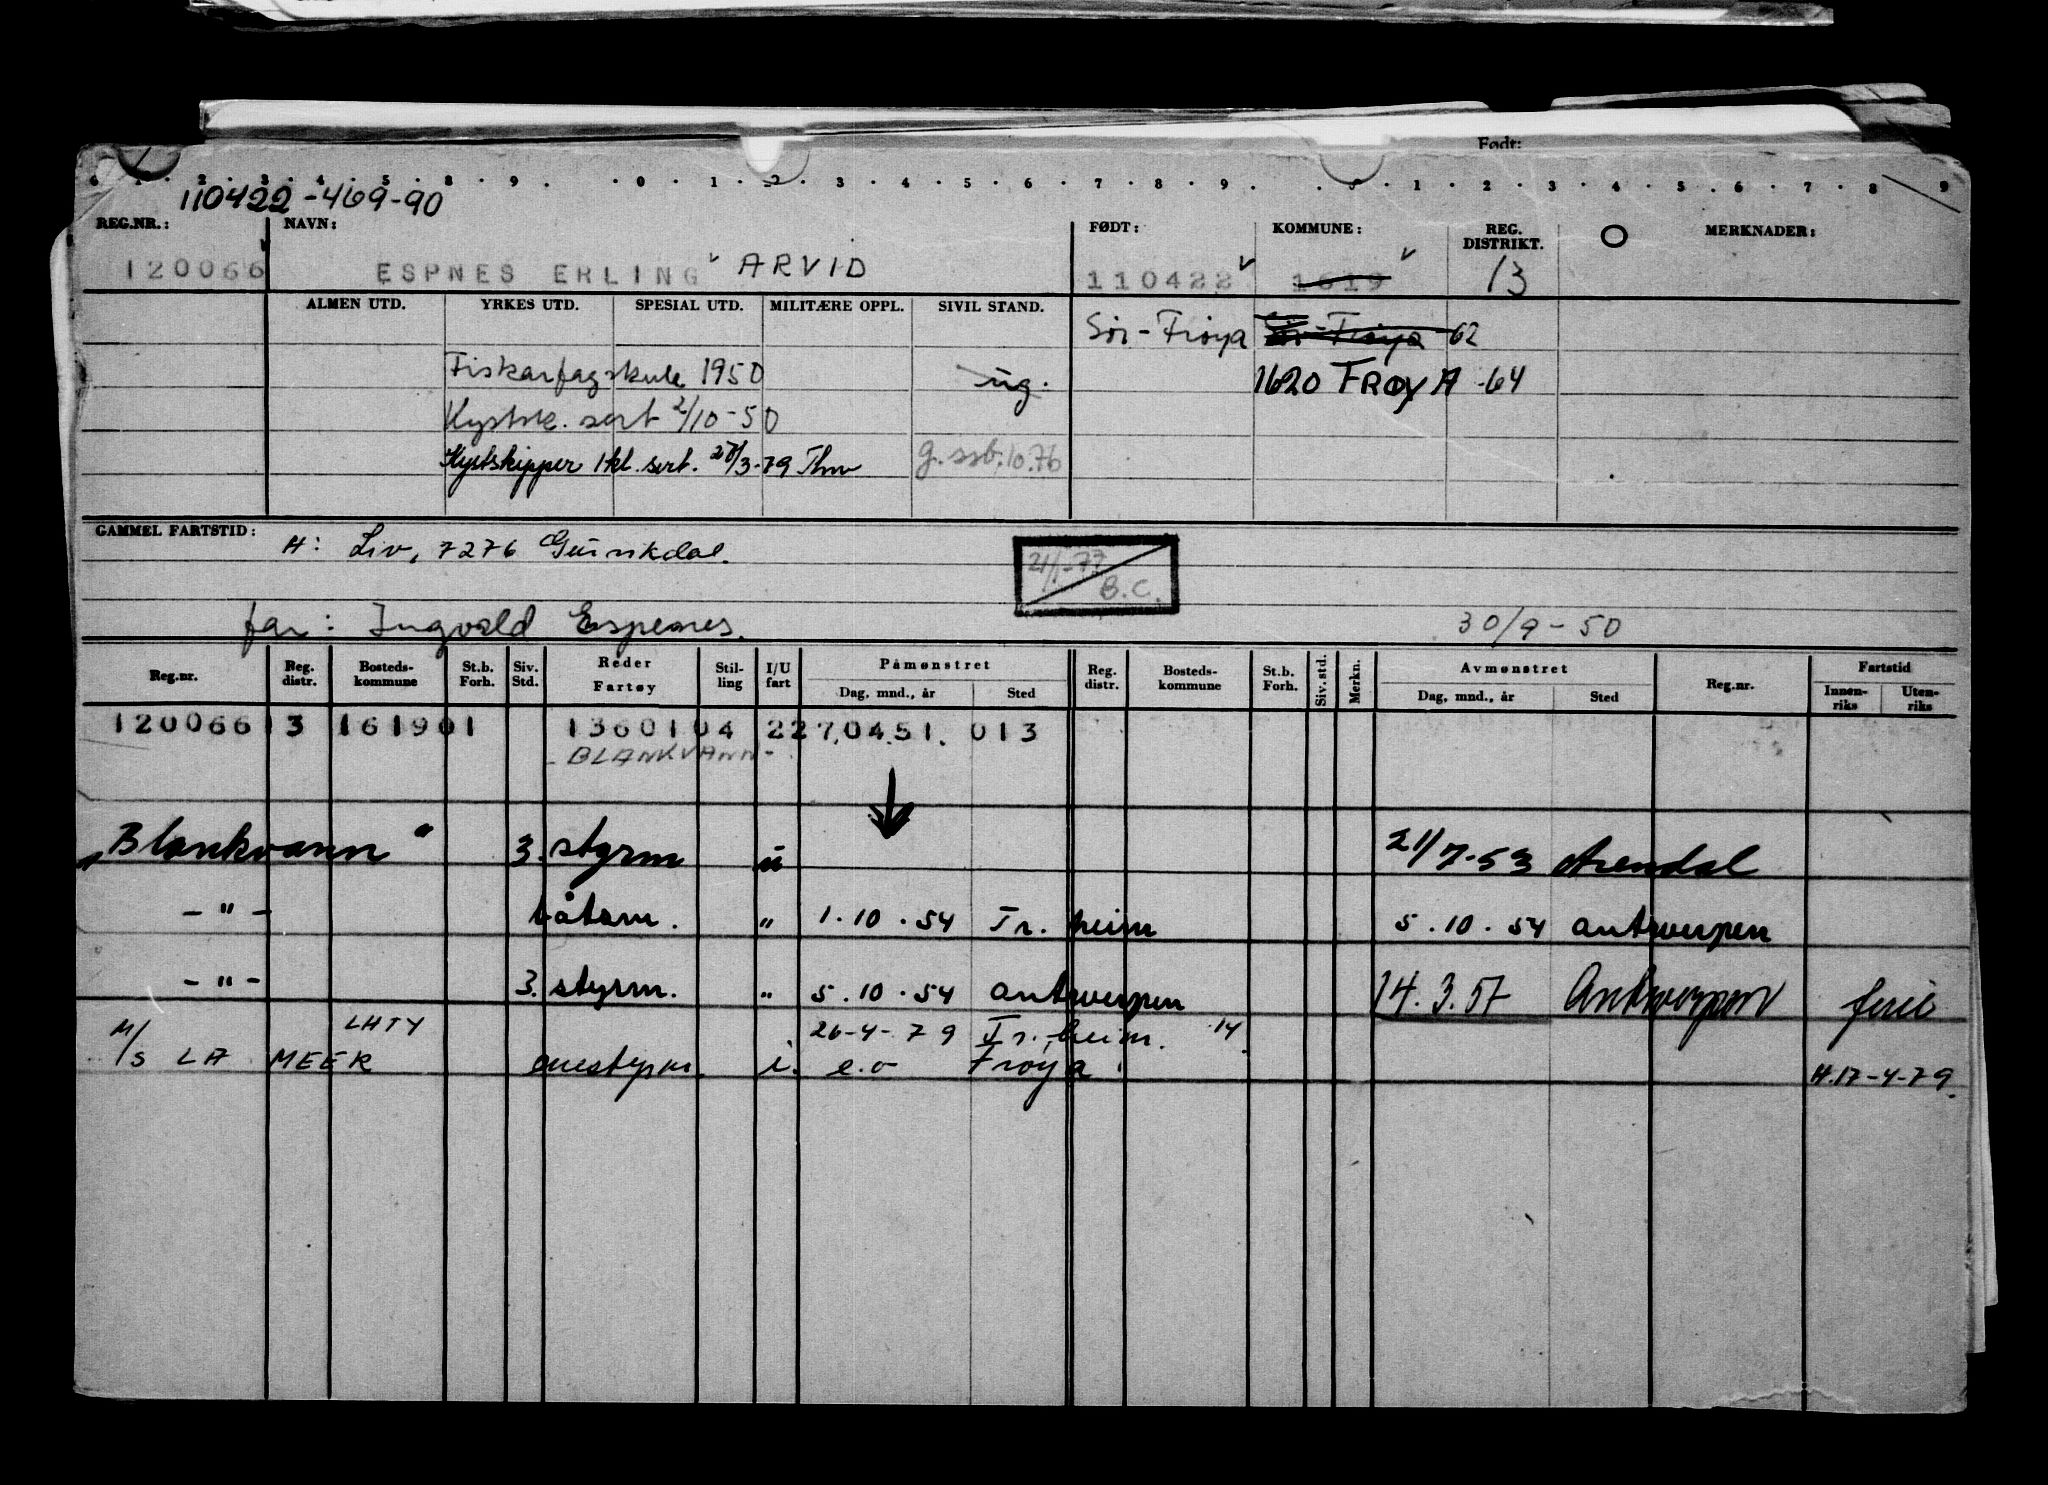 Født:
1 . 2 . 3 . 4 . 5 . 8 . 9 . . 0 . 1 . 2 . 3 . 4 . 5 . 6 . 7 . 8 . 9 . . 0 . 1 . 2 . 3 . 4 . 5 . 6 . 7 . 8 9
110422-469-90
REG.NR.: NAVN: FØDT: KOMMUNE: REG. DISTRIKT. O MERKNADER:
120066 ESPNES ERLING ARVID 110422 1619 13
ALMEN UTD. YRKES UTD. SPESIAL UTD. MILITÆRE OPPL. SIVIL STAND.
Sör-Fröya Sör-Fröya 62
Fiskarfagskule 1950 ug. 1620 FRØYA -64
Kystsk. sert 2/10-50
Kystskipper 1kl. sert. 28/3-79 Thm g. ssb. 10.76
GAMMEL FARTSTID:
H: Liv, 7276
21/1-77
B.C.
far: Ingvald Espenes. 30/9-50
Reg.nr. Reg. distr. Bosteds-kommune St.b. Forh. Siv. Std. Reder Fartøy Stil-ling I/U fart Påmønstret Dag, mnd., år Sted Reg. distr. Bosteds-kommune St.b. Forh. Siv. std. Merkn. Avmønstret Dag, mnd., år Sted Reg.nr. Fartstid Innen-riks Uten-riks
120066 13 1619 01 1360104 2 27.04.51. 013
BLANKVANN-
„Blankvann" 3. styrm u 21/7-53 Arendal
-"- båtsm. " 1.10.54 Tr.heim 5.10.54 Antwerpen
-"- 3. styrm. " 5.10.54 Antwerpen 14.3.57 Antwerpen ferie
LHTY 26-4-79 Tr.heim. 14.
M/S LA MEER enestyrm. i. e.o Frøya H.17-4-79.